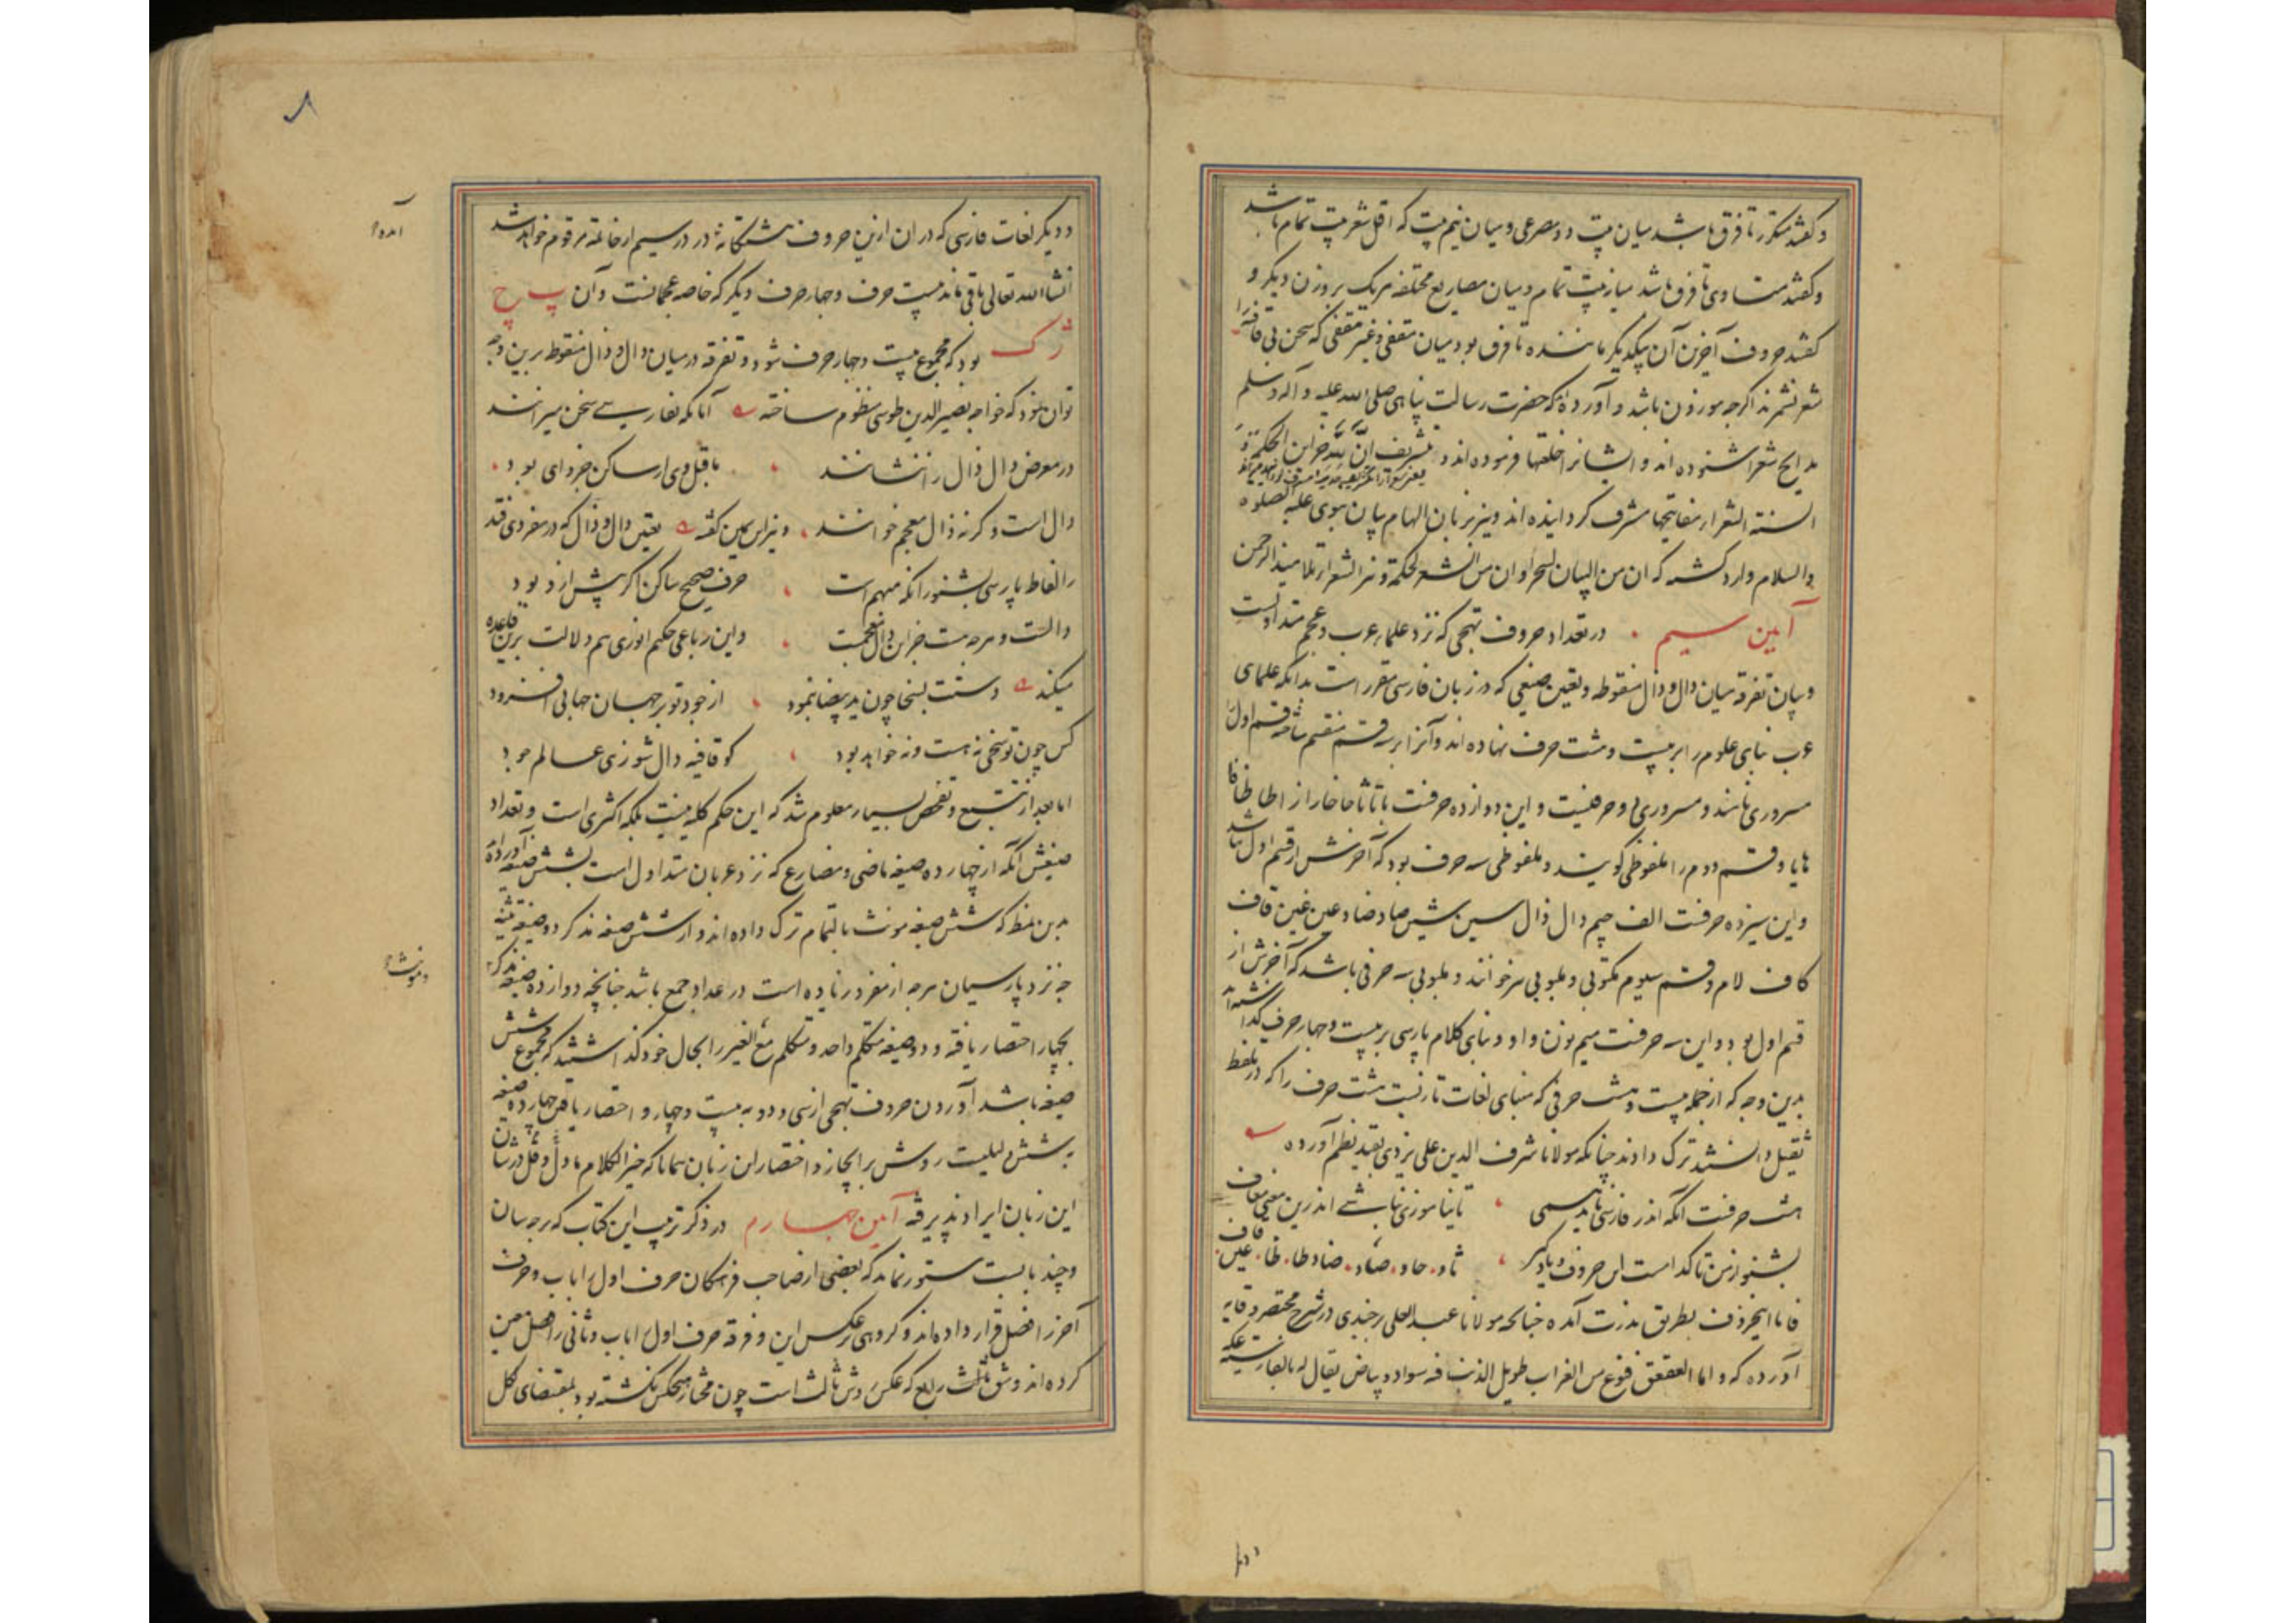 و گفتند متکرر تا فرق باشد میان بیت دو مصرعی و میان نیم بیت که اقل شعر بیت تمام باشد
و گفتند متساوی تا فرق باشد میان بیت تمام و میان مصاریع مختلفه هر یک بر وزن دیگر و
گفتند حروف آخرین آن بیکدیگر ماننده تا فرق بود میان مقفی و غیر مقفی که سخن بی قافیه را
شعر نشمرند اگرچه موزون باشد و آورده‌اند که حضرت رسالت پناهی صلی الله علیه و آله وسلم
مدایح شعرا شنوده اند و ایشانرا خلعتها فرموده اند و بتشریف ان لله خزاین الحکمة و
السنة الشعرا مفاتیحها مشرف گردانیده اند و نیز بر زبان الهام بیان نبوی علیه الصلوه
والسلام وارد گشته که ان من البیان لسحرا و ان من الشعر لحکمة و نیز الشعرا تلامیذ الرحمن
آیین سیم در تعداد حروف تهجی که نزد علماء عرب و عجم متداولست
و بیان تفرقه میان دال و ذال منقوطه و تعین صیغی که در زبان فارسی مقرر است بدانکه علمای
عرب بنای علوم را بر بیست و هشت حرف نهاده اند و آنرا بر سه قسم منقسم ساخته قسم اول
مسروری نامند و مسروری دو حرفیست و این دوازده حرفست با تا ثا حا خا را زا طا ظا فا
ها یا و قسم دوم را ملفوظی گویند و ملفوظی سه حرف بود که آخرش از قسم اول نباشد
و این سیزده حرفست الف جیم دال ذال سین شین صاد ضاد عین غین قاف
کاف لام و قسم سیوم مکتوبی و ملبوبی نیز خوانند و ملبوبی سه حرفی باشد که آخرش از
قسم اول بود و این سه حرفست میم نون واو و بنای کلام پارسی بر بیست و چهار حرف گذاشته اند
بدین وجه که از جمله بیست و هشت حرفی که مبنای لغات تازیست هشت حرف را که در تلفظ
ثقیل دانستند ترک دادند چنانکه مولانا شرف الدین علی یزدی بقید نظم آورده
هشت حرفست آنکه اندر فارسی ناید همی تا نیاموزی نباشی اندرین معنی معاف
بشنو از من تا کدامست این حروف و یاد گیر ثا و حا و صاد و ضاد و طا و ظا و عین و قاف
فاما این حروف بطریق ندرت آمده چنانچه مولانا عبد العلی برجندی در شرح مختصر وقایه
آورده که و اما العقعق فنوع من الغراب طویل الذنب فیه سواد و بیاض یقال له بالفارسیة عکه
و دیگر لغات فارسی که در آن ازین حروف هشتگانه در در سیم از خاتمه مرقوم خواهد شد
انشاالله تعالی باقی ماند بیست حرف و چهار حرف دیگر که خاصه عجمانست و آن پ چ
ژ ک بود که مجموع بیست و چهار حرف شود و تفرقه در میان دال و ذال منقوطه برین وجه
توان نمود که خواجه نصیر الدین طوسی منظوم ساخته آنانکه بفارسی سخن میرانند
در معرض دال ذال را ننشانند ما قبل وی ار ساکن جز وای بود
دال است و گرنه ذال معجم خوانند و نیز ابن یمین گفته تعین دال و ذال که در مفردی فتد
ز الفاظ پارسی بشنو زانکه مبهم است حرف صحیح ساکن اگر پیش ازو بود
دالست و هر چه هست جز این ذال معجمست و این رباعی حکیم انوری هم دلالت برین قاعده
میکند دستت بسخا چون ید بیضا بنمود از جود تو بر جهان جهانی افزود
کس چون تو سخی نه هست و نه خواهد بود گو قافیه دال شو زهی عالم جود
اما بعد از تتبع و تفحص بسیار معلوم شد که این حکم کلیه نیست بلکه اکثری است و تعداد
صیغش آنکه از چهارده صیغه ماضی و مضارع که نزد عربان متداول است بشش صیغه آورده‌اند
بدین نمط که شش صیغه مونث بالتمام ترک داده اند و از شش صیغه مذکر دو صیغه تثنیه
چه نزد پارسیان هر چه از مفرد زیاده است در عداد جمع باشد چنانچه دوازده صیغه مذکر
بچهار اختصار یافته و دو صیغه متکلم واحد و متکلم مع الغیر را بحال خود گذاشتند که مجموع شش
صیغه باشد آوردن حروف تهجی از سی و دو به بیست و چهار و اختصار یافتن چهارده صیغه
به شش دلیلیست روشن بر ایجاز و اختصار این زبان همانا که خیر الکلام ما دل و قل در شان
این زبان ایراد پذیرفته آیین چهارم در ذکر ترتیب این کتاب که بر چه سان
و چند بابست مستور نماند که بعضی از صاحب فرهنگان حرف اول را باب و حرف
آخر را فصل قرار داده‌اند و گروهی بر عکس این و فرقه حرف اول را باب و ثانی را فصل معین
کرده اند و شق ثالث رابع که عکس روش ثالث است چون مختار هیچکس نگشته بود بمقتضای کل